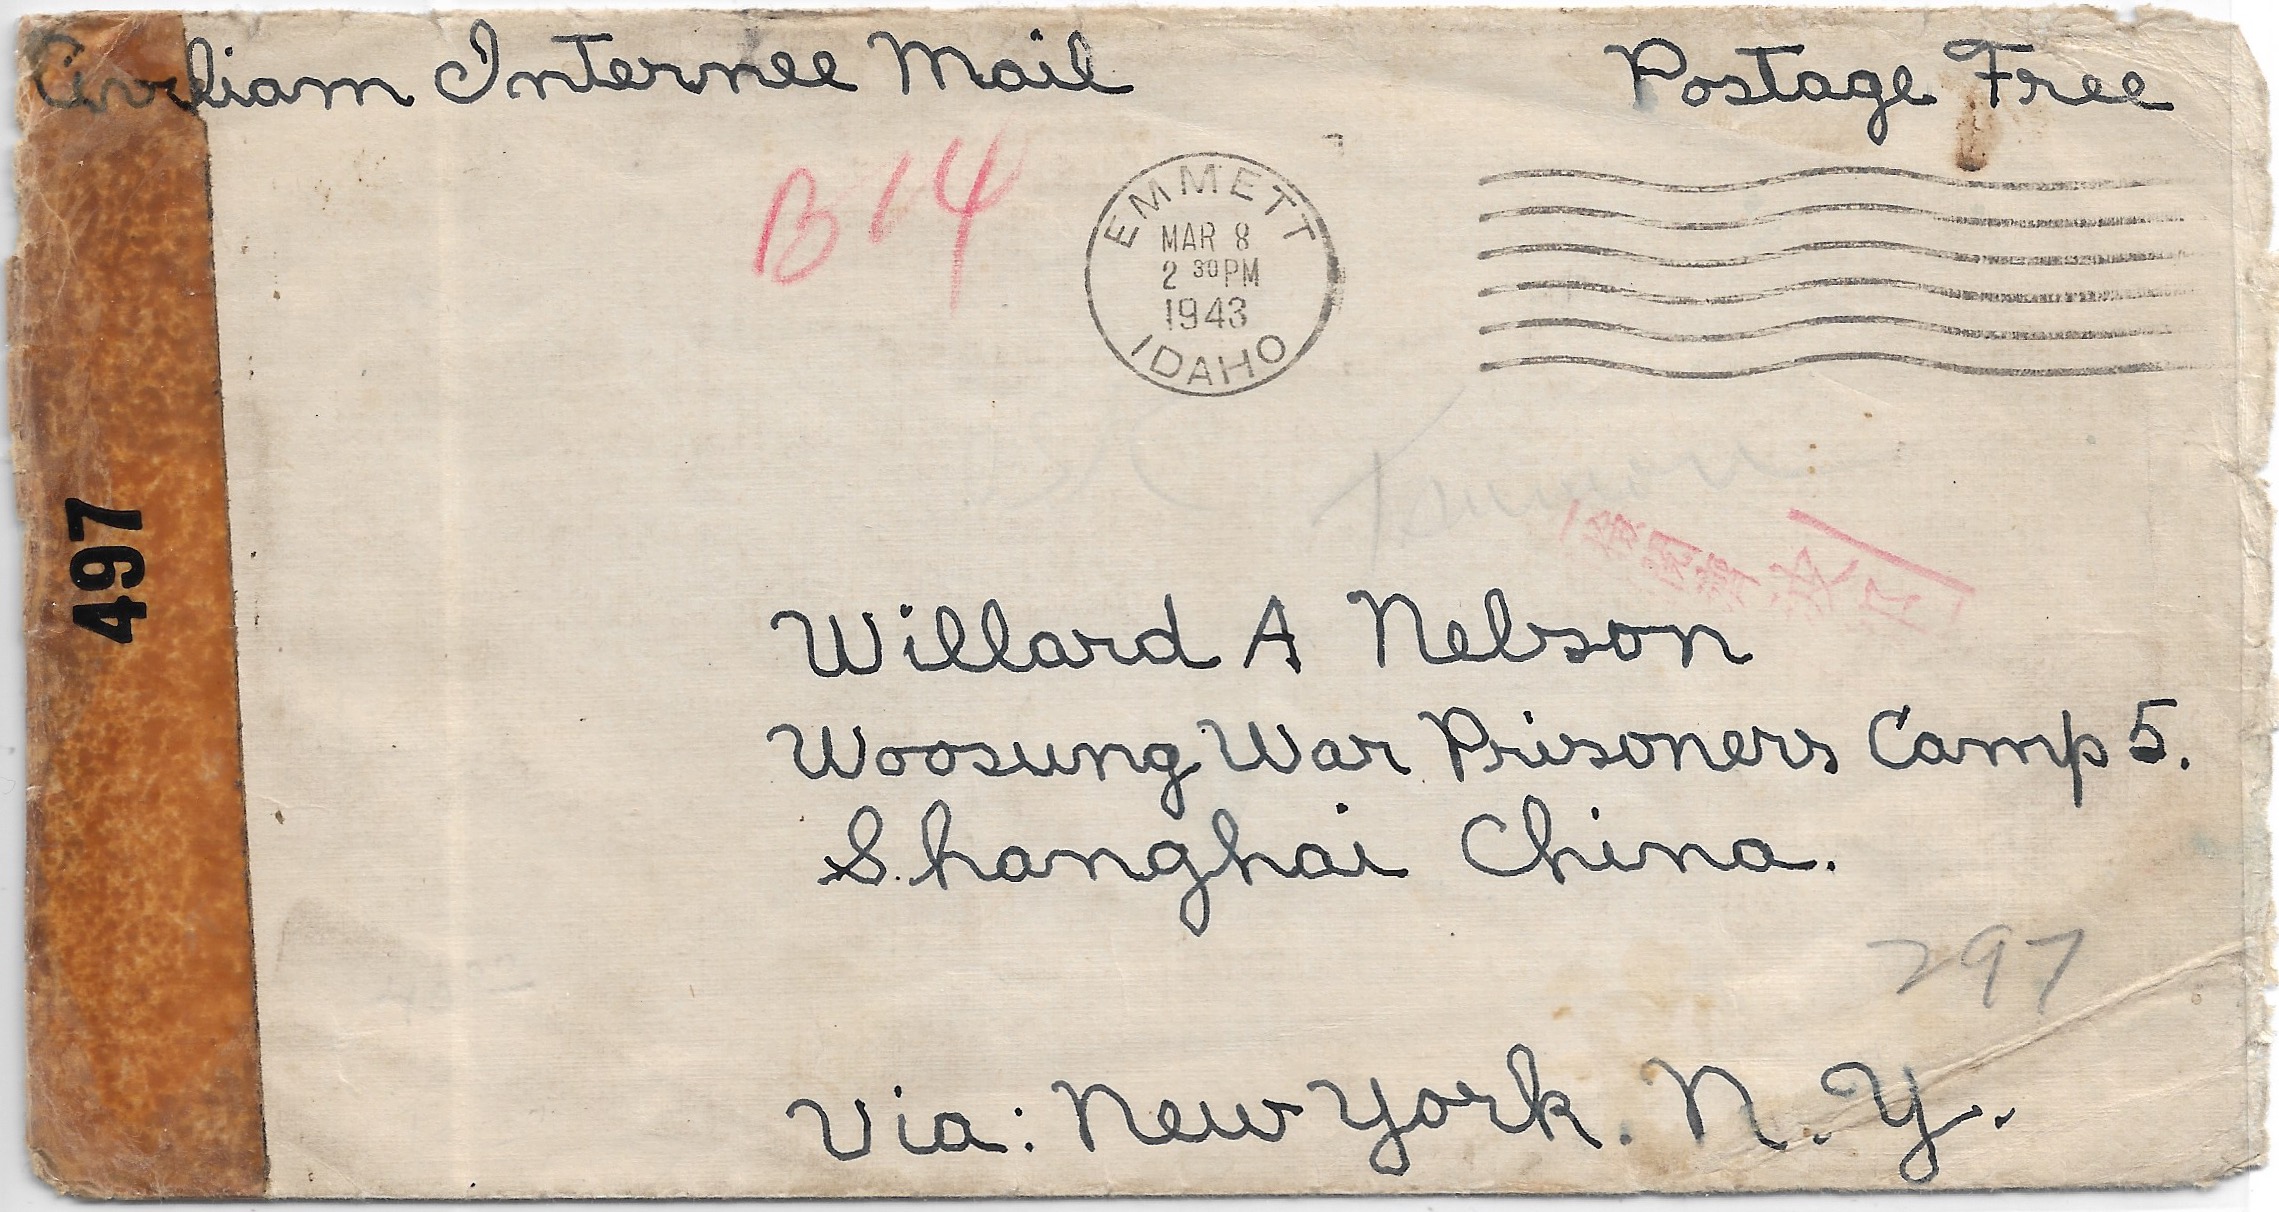 Civiliam Internee Mail
Postage Free
B14
EMMETT
MAR 8
2 30 PM
1943
IDAHO
497
Willard A Nelson
Woosung War Prisoners Camp 5.
Shanghai China.
297
Via: New York. N. Y.